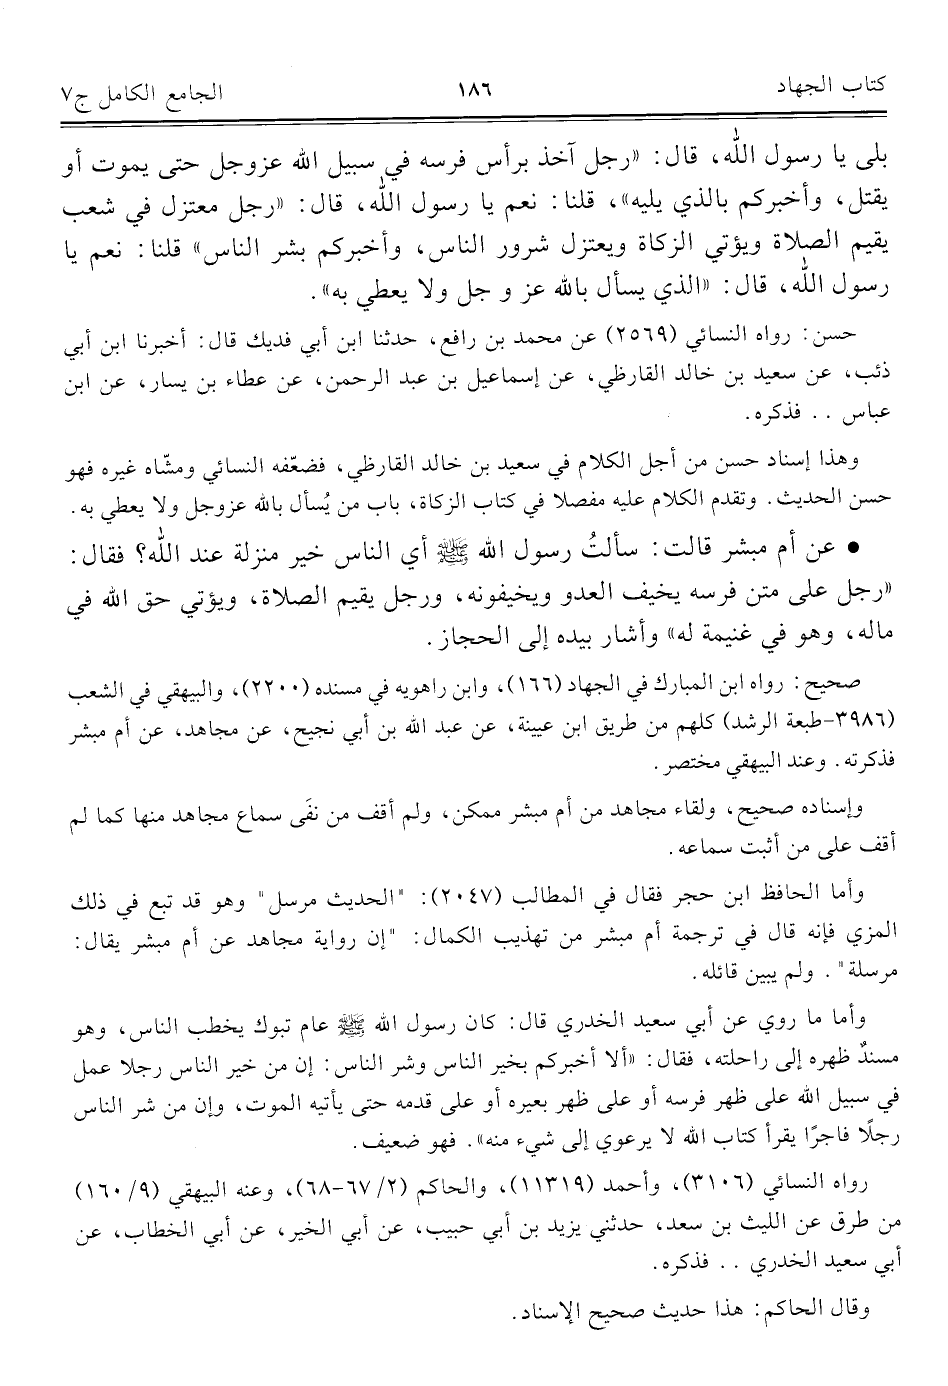 كتاب الجهاد ١٨٦ الجامع الكامل ج٧
بلى يا رسول الله، قال: «رجل آخذ برأس فرسه في سبيل الله عزوجل حتى يموت أو
يقتل، وأخبركم بالذي يليه»، قلنا: نعم يا رسول الله، قال: «رجل معتزل في شعب
يقيم الصلاة ويؤتي الزكاة ويعتزل شرور الناس، وأخبركم بشر الناس» قلنا: نعم يا
رسول الله، قال: «الذي يسأل بالله عز و جل ولا يعطي به».
حسن: رواه النسائي (٢٥٦٩) عن محمد بن رافع، حدثنا ابن أبي فديك قال: أخبرنا ابن أبي
ذئب، عن سعيد بن خالد القارظي، عن إسماعيل بن عبد الرحمن، عن عطاء بن يسار، عن ابن
عباس .. فذكره.
وهذا إسناد حسن من أجل الكلام في سعيد بن خالد القارظي، فضعّفه النسائي ومشّاه غيره فهو
حسن الحديث. وتقدم الكلام عليه مفصلا في كتاب الزكاة، باب من يُسأل بالله عزوجل ولا يعطي به.
• عن أم مبشر قالت: سألتُ رسول الله ﷺ أي الناس خير منزلة عند الله؟ فقال:
«رجل على متن فرسه يخيف العدو ويخيفونه، ورجل يقيم الصلاة، ويؤتي حق الله في
ماله، وهو في غنيمة له» وأشار بيده إلى الحجاز.
صحيح: رواه ابن المبارك في الجهاد (١٦٦)، وابن راهويه في مسنده (٢٢٠٠)، والبيهقي في الشعب
(٣٩٨٦-طبعة الرشد) كلهم من طريق ابن عيينة، عن عبد الله بن أبي نجيح، عن مجاهد، عن أم مبشر
فذكرته. وعند البيهقي مختصر.
وإسناده صحيح، ولقاء مجاهد من أم مبشر ممكن، ولم أقف من نفَى سماع مجاهد منها كما لم
أقف على من أثبت سماعه.
وأما الحافظ ابن حجر فقال في المطالب (٢٠٤٧): "الحديث مرسل" وهو قد تبع في ذلك
المزي فإنه قال في ترجمة أم مبشر من تهذيب الكمال: "إن رواية مجاهد عن أم مبشر يقال:
مرسلة". ولم يبين قائله.
وأما ما روي عن أبي سعيد الخدري قال: كان رسول الله ﷺ عام تبوك يخطب الناس، وهو
مسندٌ ظهره إلى راحلته، فقال: «ألا أخبركم بخير الناس وشر الناس: إن من خير الناس رجلا عمل
في سبيل الله على ظهر فرسه أو على ظهر بعيره أو على قدمه حتى يأتيه الموت، وإن من شر الناس
رجلًا فاجرًا يقرأ كتاب الله لا يرعوي إلى شيء منه». فهو ضعيف.
رواه النسائي (٣١٠٦)، وأحمد (١١٣١٩)، والحاكم (٢/ ٦٧-٦٨)، وعنه البيهقي (٩/ ١٦٠)
من طرق عن الليث بن سعد، حدثني يزيد بن أبي حبيب، عن أبي الخير، عن أبي الخطاب، عن
أبي سعيد الخدري .. فذكره.
وقال الحاكم: هذا حديث صحيح الإسناد.